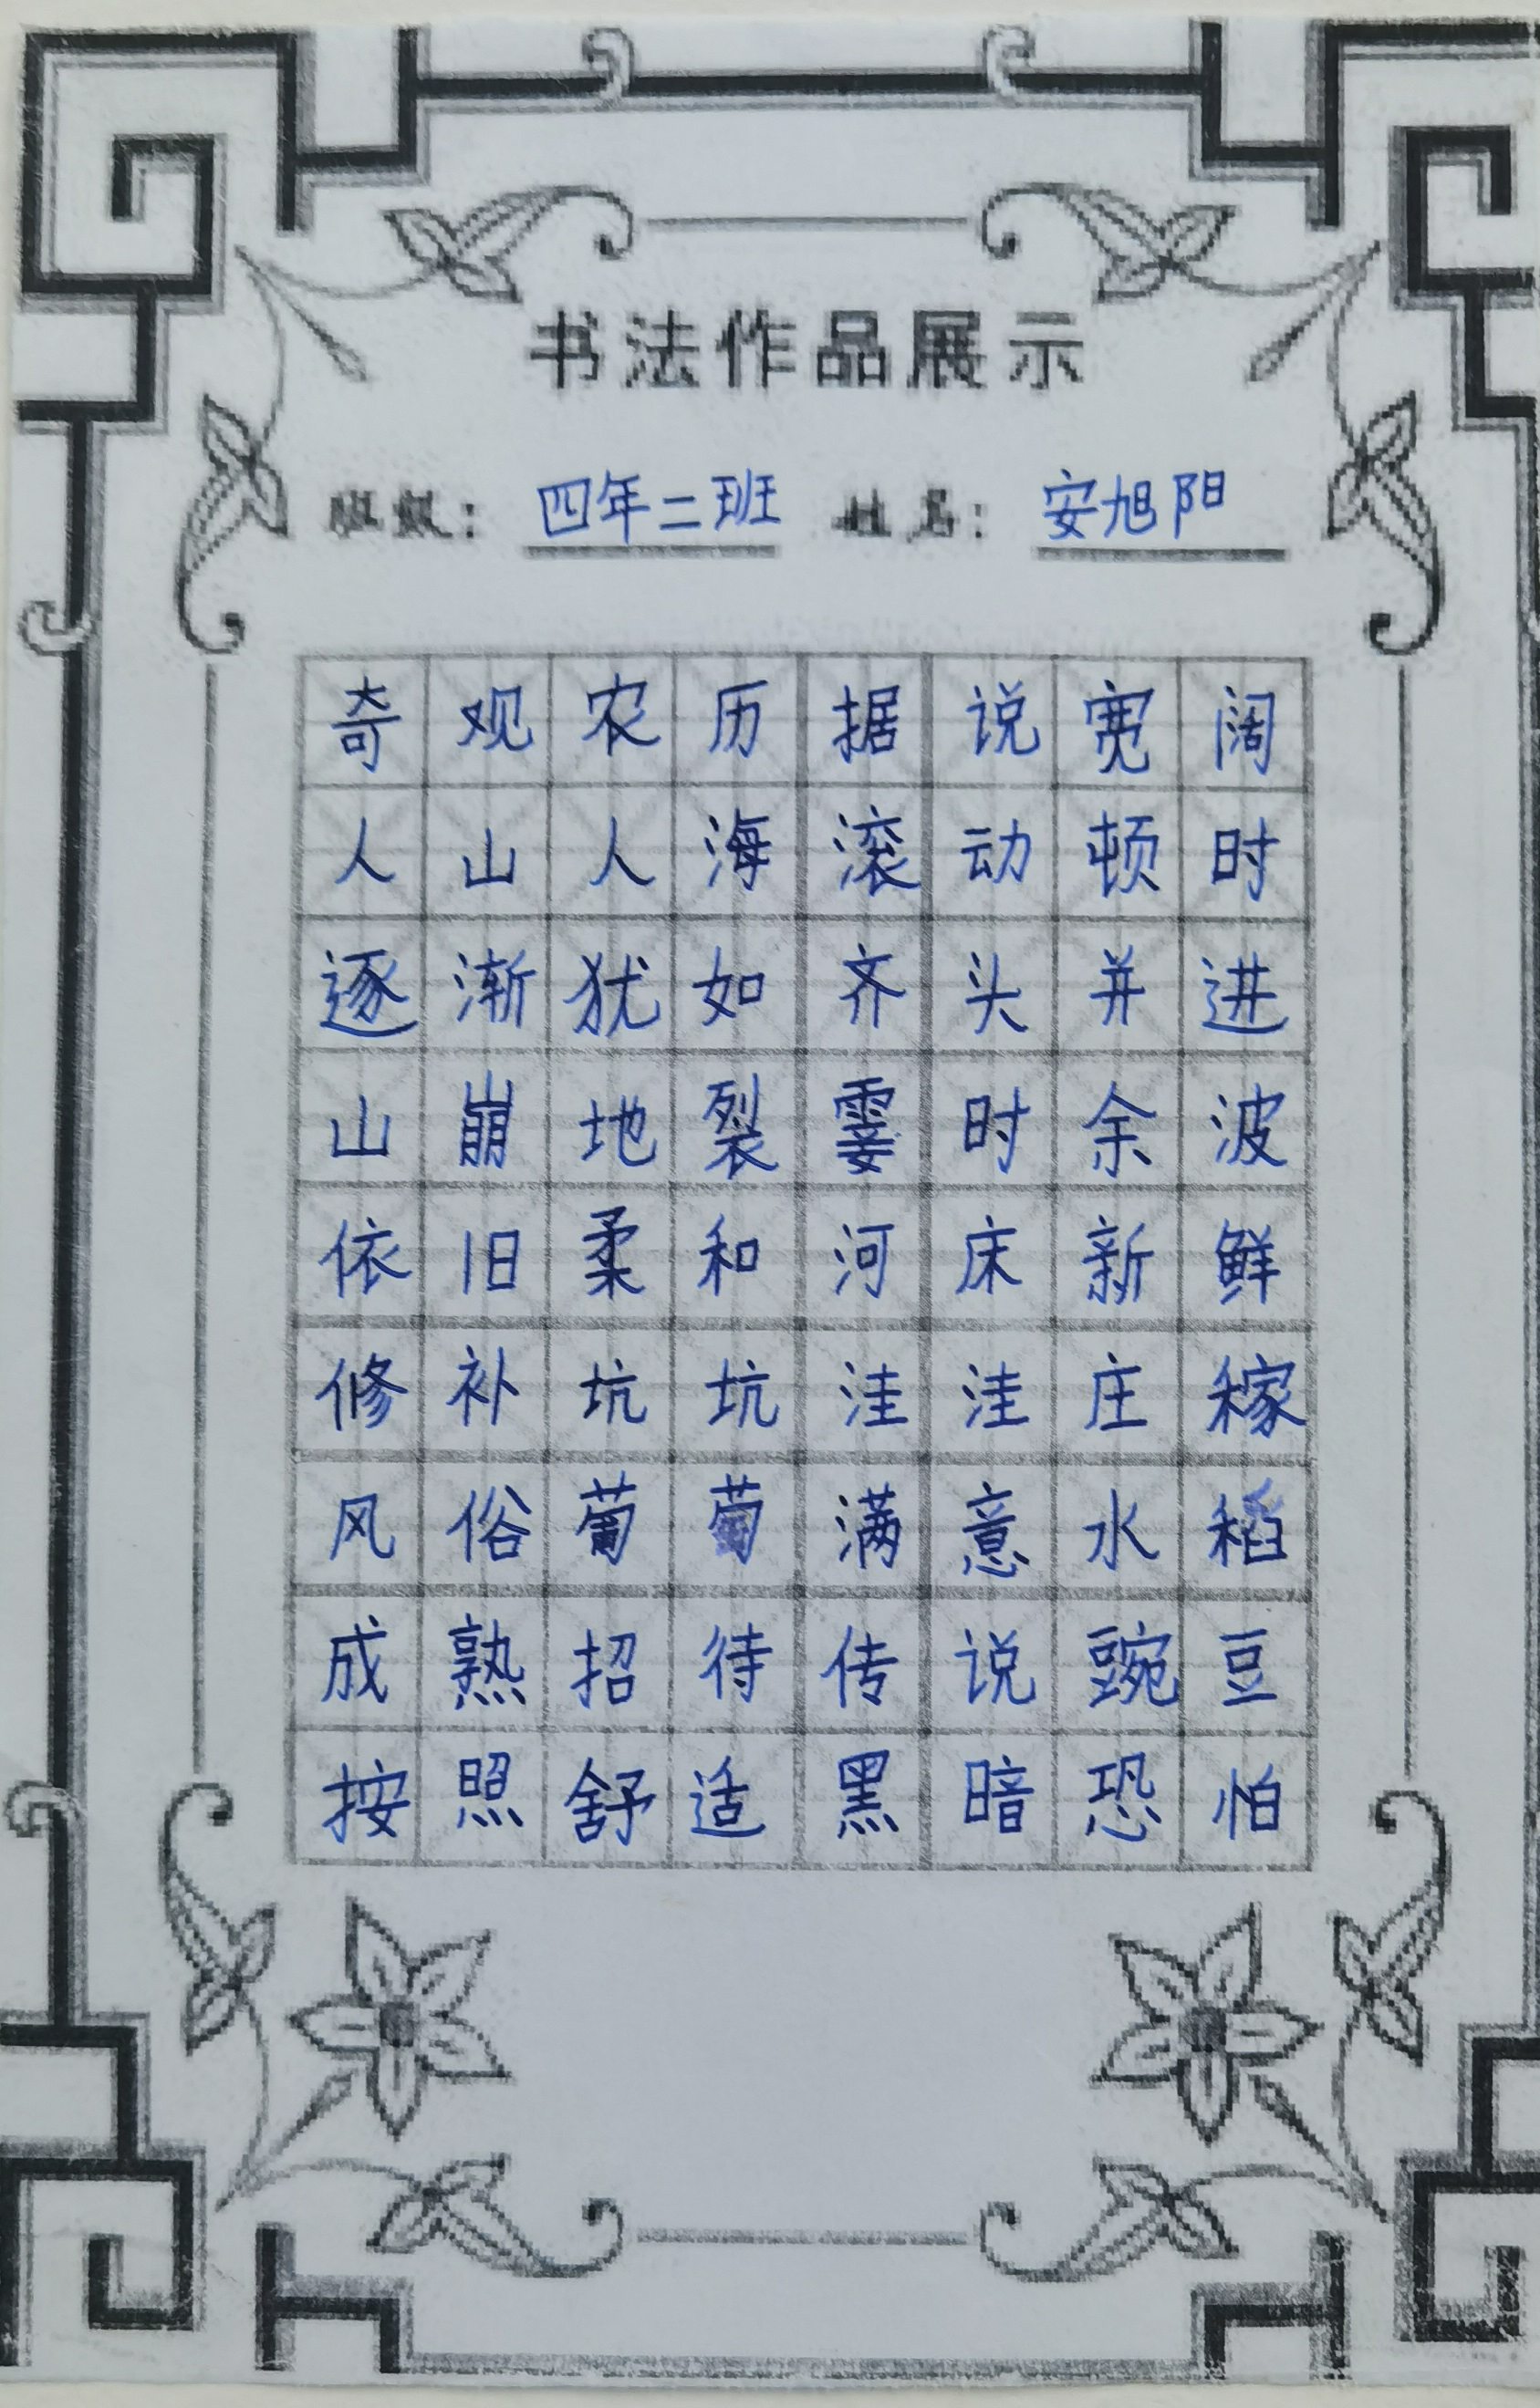 书法作品展示
班级：四年二班 姓名：安旭阳
奇观农历据说宽阔
人山人海滚动顿时
逐渐犹如齐头并进
山崩地裂霎时余波
依旧柔和河床新鲜
修补坑坑洼洼庄稼
风俗葡萄满意水稻
成熟招待传说豌豆
按照舒适黑暗恐怕